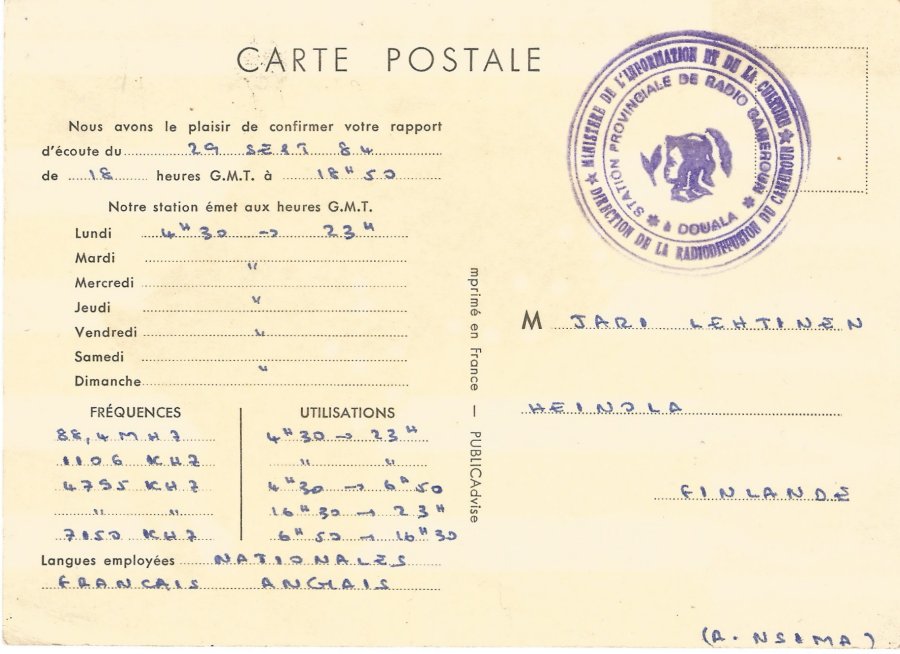 CARTE POSTALE
Nous avons le plaisir de confirmer votre rapport
d'écoute du 29 SEPT 84
de 18 heures G.M.T. à 18H50
Notre station émet aux heures G.M.T.
Lundi 4H30 → 23H
Mardi "
Mercredi "
Jeudi "
Vendredi "
Samedi "
Dimanche
FRÉQUENCES UTILISATIONS
88,4 MHZ 4H30 → 23H
1106 KHZ " "
4795 KHZ 4H30 → 6H50
" " 16H30 → 23H
7150 KHZ 6H50 → 16H30
Langues employées NATIONALES
FRANCAIS ANGLAIS
mprimé en France — PUBLICAdvise
★ MINISTERE DE L'INFORMATION ET DU LA CULTURE ★
DIRECTION DE LA RADIODIFFUSION DU CAMEROUN
STATION PROVINCIALE DE RADIO CAMEROUN
✱ à DOUALA ✱
M JARI LEHTINEN
HEINOLA
FINLANDE
(A. NSIMA)